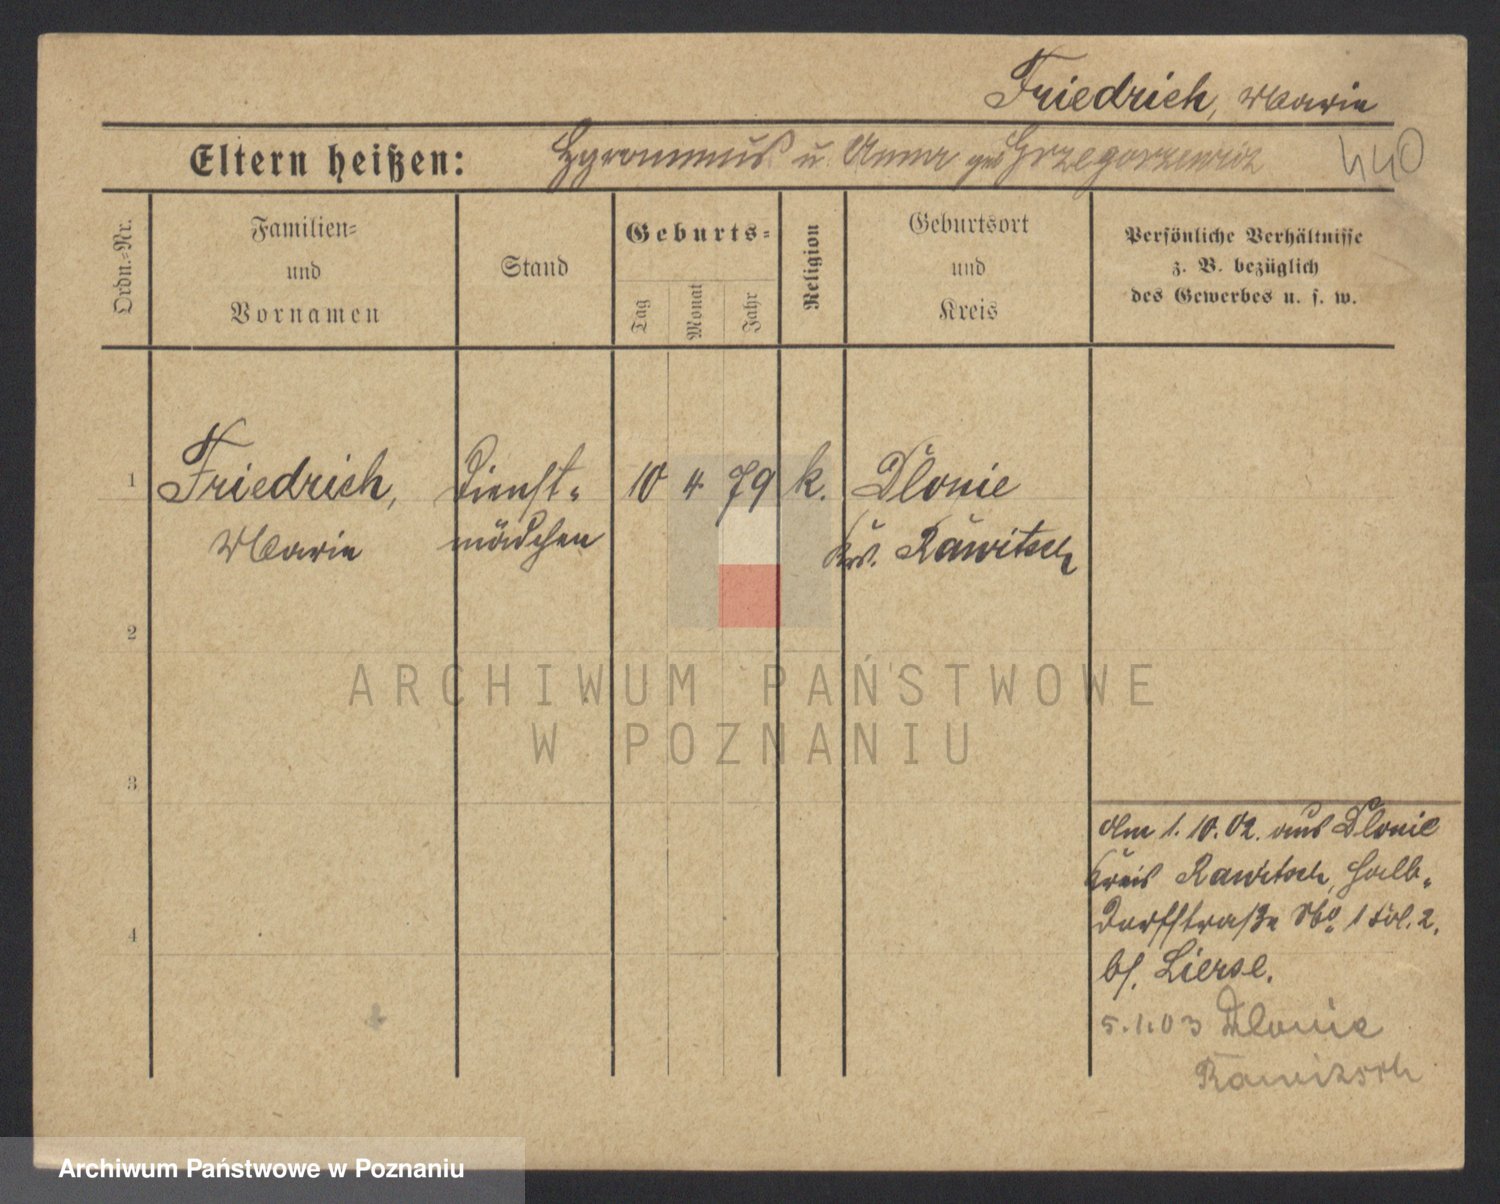 Friedrich, Marie
Eltern heißen: u. Anna geb. Grzegorzewicz
440
Ordn.-Nr.
Familien-
und
Vornamen
Stand
Geburts-
Tag
Monat
Jahr
Religion
Geburtsort
und
Kreis
Persönliche Verhältnisse
z. B. bezüglich
des Gewerbes u. s. w.
1 Friedrich, Dienst- 10 4 79 k. Dlonie
Marie mädchen Krs. Rawitsch
2
3
4
Am 1.10.02. aus Dlonie
Kreis Rawitsch, Halb-
dorfstraße No. 1
bf. Lierse.
5.1.03 Dlonie
Rawitsch
ARCHIWUM PAŃSTWOWE
W POZNANIU
Archiwum Państwowe w Poznaniu